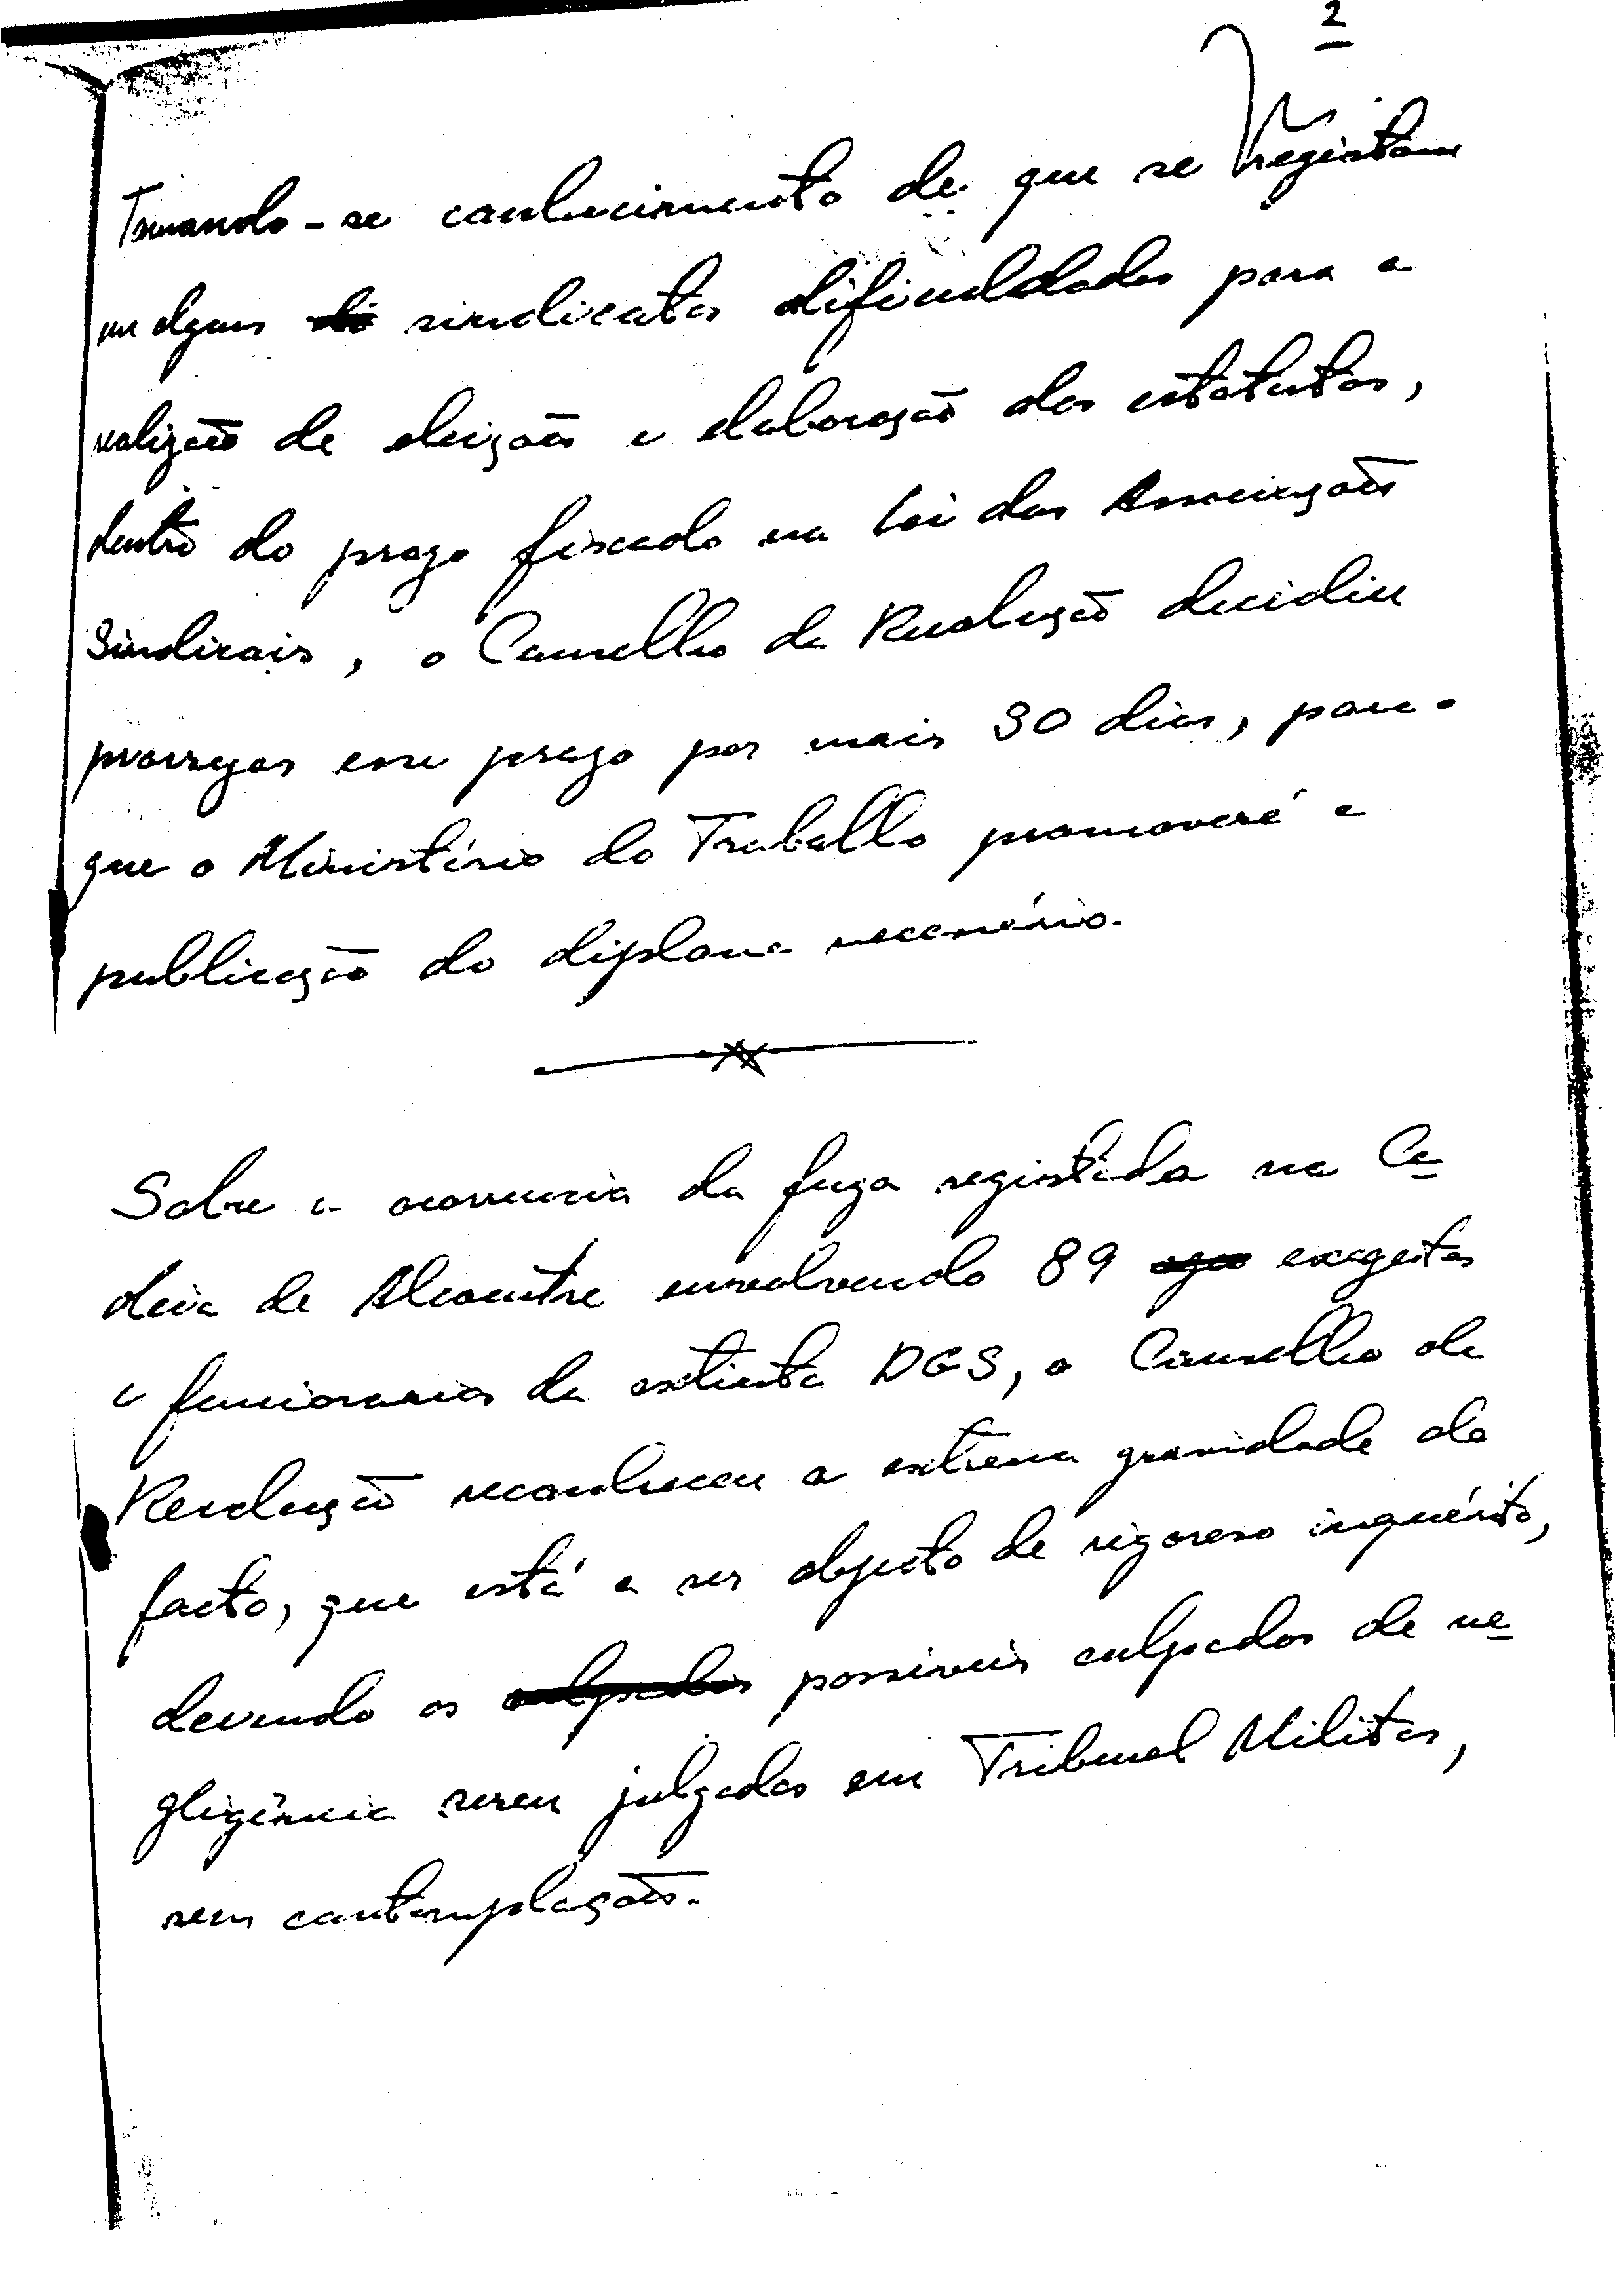 2
Tomando-se conhecimento de que se registam
em alguns sindicatos dificuldades para a
realização de eleições e elaboração dos estatutos,
dentro do prazo fixado na Lei das Associações
Sindicais, o Conselho da Revolução decidiu
prorrogar esse prazo por mais 30 dias, para o
que o Ministério do Trabalho promoverá a
publicação do diploma necessário.
Sobre a ocorrencia da fuga registada na Ca
deia de Alcoentre envolvendo 89 exagentes
e funcionarios da extinta DGS, o Conselho da
Revolução reconheceu a extrema gravidade do
facto, que está a ser objecto de rigoroso inquérito,
devendo os culpados possiveis culpados de ne
gligência serem julgados em Tribunal Militar,
sem contemplações.